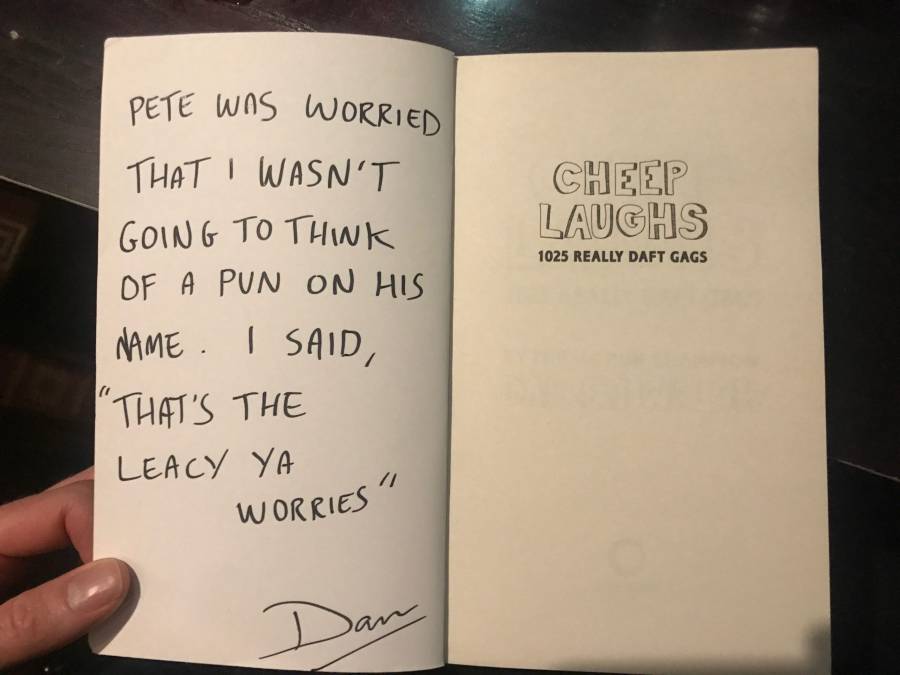 PETE WAS WORRIED
THAT I WASN'T
GOING TO THINK
OF A PUN ON HIS
NAME. I SAID,
"THAT'S THE
LEACY YA
WORRIES"
Dan
CHEEP
LAUGHS
1025 REALLY DAFT GAGS